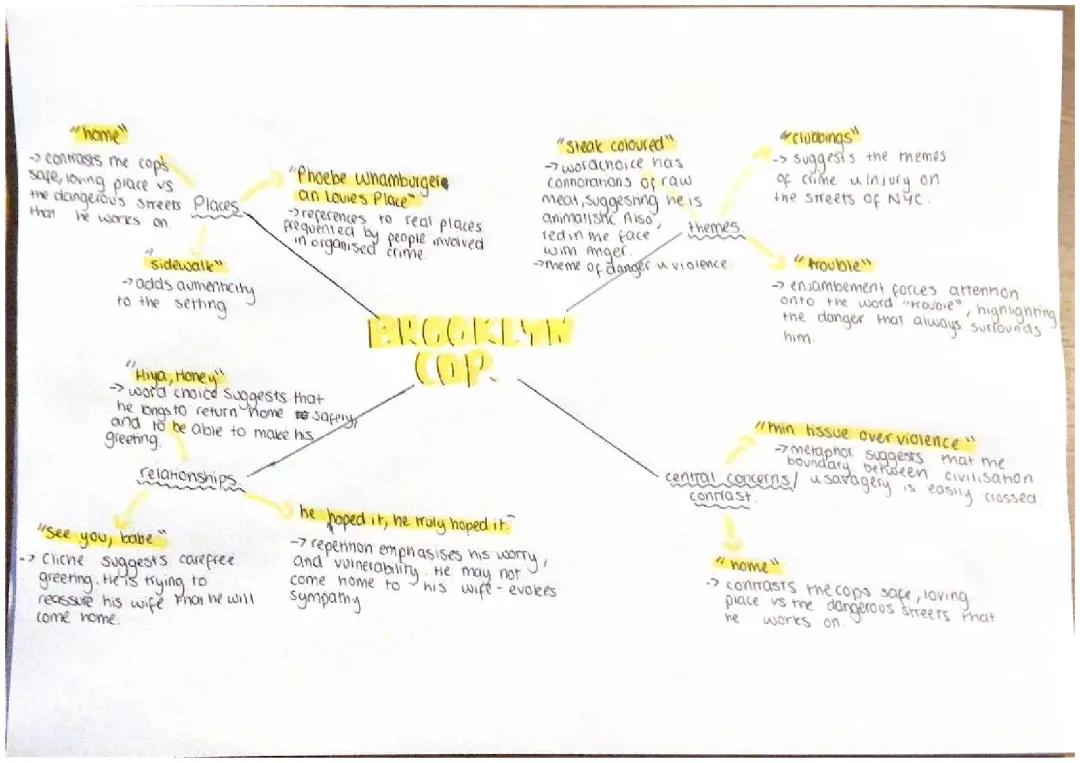 "home"
-> contrasts the cop's
safe, loving place vs
the dangerous streets
that he works on.
Places
"Phoebe Whamburger
an Louies Place"
-> references to real places
frequented by people involved
in organised crime.
"sidewalk"
-> adds authenticity
to the setting
"Steak coloured"
-> wordchoice has
connotations of raw
meat, suggesting he is
animalistic. Also,
red in the face
with anger.
-> theme of danger & violence.
themes
"clubbings"
-> suggests the themes
of crime & injury on
the streets of NYC.
"trouble"
-> enjambement forces attention
onto the word "trouble", highlighting
the danger that always surrounds
him.
BROOKLYN
COP.
"Hiya, Honey"
-> word choice suggests that
he longs to return home safely,
and to be able to make his
greeting.
relationships
"see you, babe"
-> Cliche suggests carefree
greeting. He is trying to
reassure his wife that he will
come home.
he hoped it, he truly hoped it."
-> repetition emphasises his worry,
and vulnerability. He may not
come home to his wife - evokes
sympathy
central concerns/
contrast.
"thin tissue over violence"
-> metaphor suggests that the
boundary between civilisation
& savagery is easily crossed.
"home"
-> contrasts the cops safe, loving
place vs the dangerous streets that
he works on.